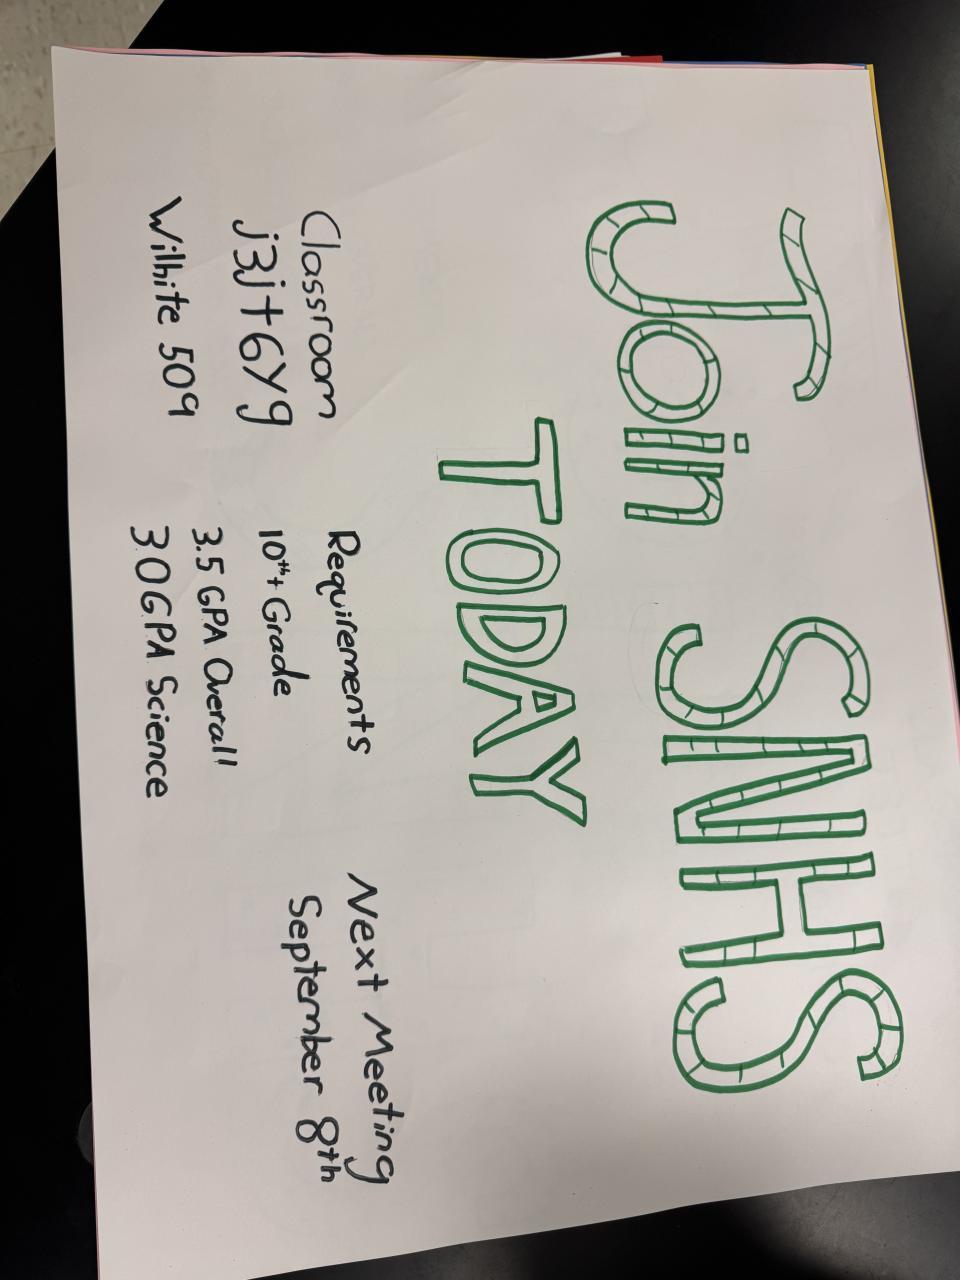 Join SNHS
TODAY
Classroom
j3jt6yg
Wilhite 509
Requirements
10th+ Grade
3.5 GPA Overall
3.0 GPA Science
Next Meeting
September 8th